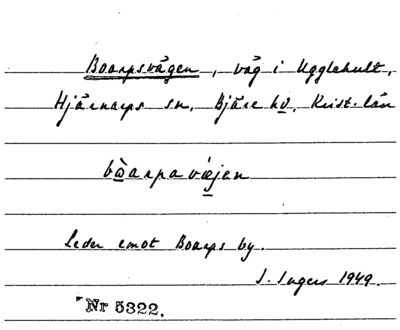 Boarpsvägen, väg i Ugglehult,
Hjärnarps sn, Bjäre hd, Krist. län
bωarpavæjen
Leder emot Boarps by.
I. Ingers 1949.
Nr 5322.